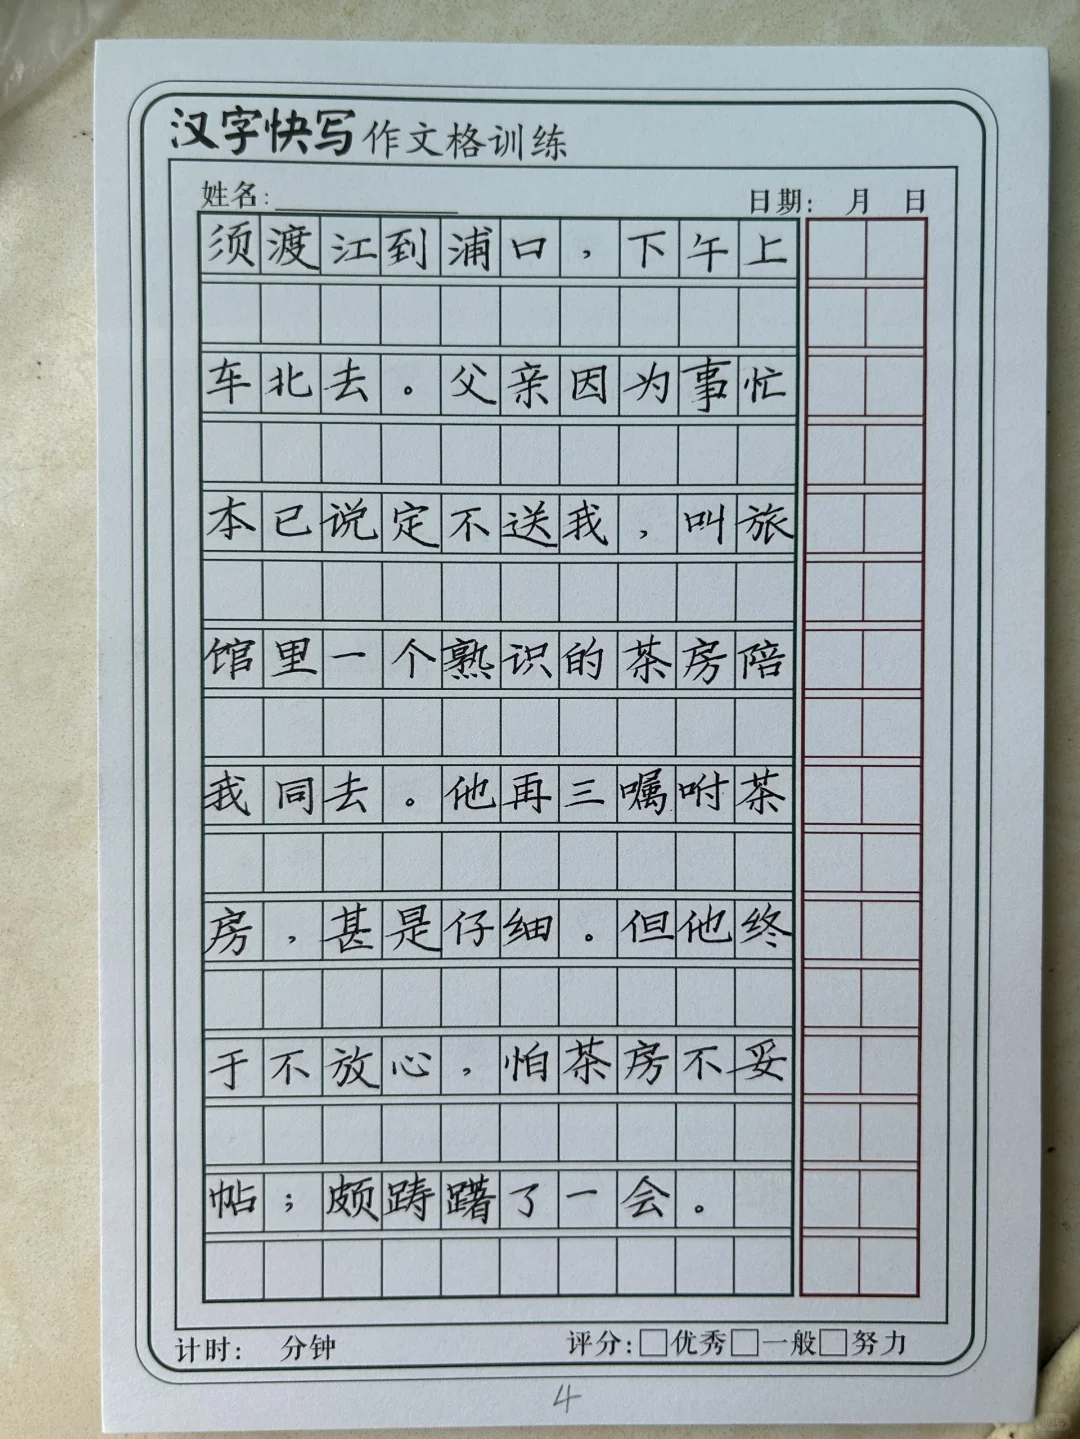 汉字快写作文格训练
姓名: 日期: 月 日
须渡江到浦口，下午上
车北去。父亲因为事忙
本已说定不送我，叫旅
馆里一个熟识的茶房陪
我同去。他再三嘱咐茶
房，甚是仔细。但他终
于不放心，怕茶房不妥
帖；颇踌躇了一会。
计时: 分钟 评分:□优秀□一般□努力
4